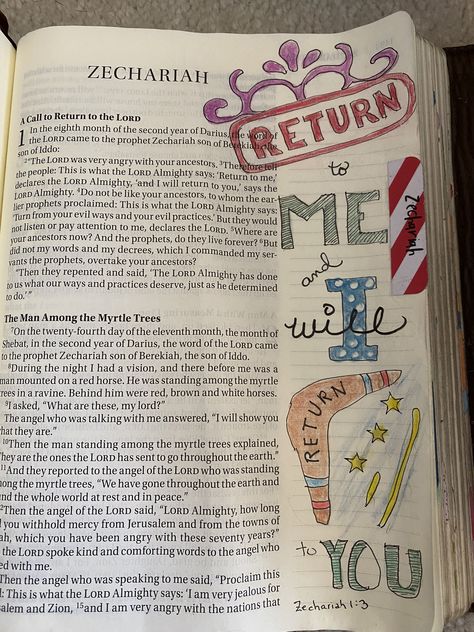 ZECHARIAH
A Call to Return to the LORD
1 In the eighth month of the second year of Darius, the word of
the LORD came to the prophet Zechariah son of Berekiah, the
son of Iddo:
2“The LORD was very angry with your ancestors. 3Therefore tell
the people: This is what the LORD Almighty says: ‘Return to me,’
declares the LORD Almighty, ‘and I will return to you,’ says the
LORD Almighty. 4Do not be like your ancestors, to whom the ear-
lier prophets proclaimed: This is what the LORD Almighty says:
‘Turn from your evil ways and your evil practices.’ But they would
not listen or pay attention to me, declares the LORD. 5Where are
your ancestors now? And the prophets, do they live forever? 6But
did not my words and my decrees, which I commanded my ser-
vants the prophets, overtake your ancestors?
“Then they repented and said, ‘The LORD Almighty has done
to us what our ways and practices deserve, just as he determined
to do.’”
The Man Among the Myrtle Trees
7On the twenty-fourth day of the eleventh month, the month of
Shebat, in the second year of Darius, the word of the LORD came
to the prophet Zechariah son of Berekiah, the son of Iddo.
8During the night I had a vision, and there before me was a
man mounted on a red horse. He was standing among the myrtle
trees in a ravine. Behind him were red, brown and white horses.
9I asked, “What are these, my lord?”
The angel who was talking with me answered, “I will show you
what they are.”
10Then the man standing among the myrtle trees explained,
“They are the ones the LORD has sent to go throughout the earth.”
11And they reported to the angel of the LORD who was standing
among the myrtle trees, “We have gone throughout the earth and
found the whole world at rest and in peace.”
12Then the angel of the LORD said, “LORD Almighty, how long
will you withhold mercy from Jerusalem and from the towns of
Judah, which you have been angry with these seventy years?”
the LORD spoke kind and comforting words to the angel who
talked with me.
Then the angel who was speaking to me said, “Proclaim this
word: This is what the LORD Almighty says: ‘I am very jealous for
Jerusalem and Zion, 15and I am very angry with the nations that
RETURN
to
ME
Zechariah
and
I
will
RETURN
to YOU
Zechariah 1:3